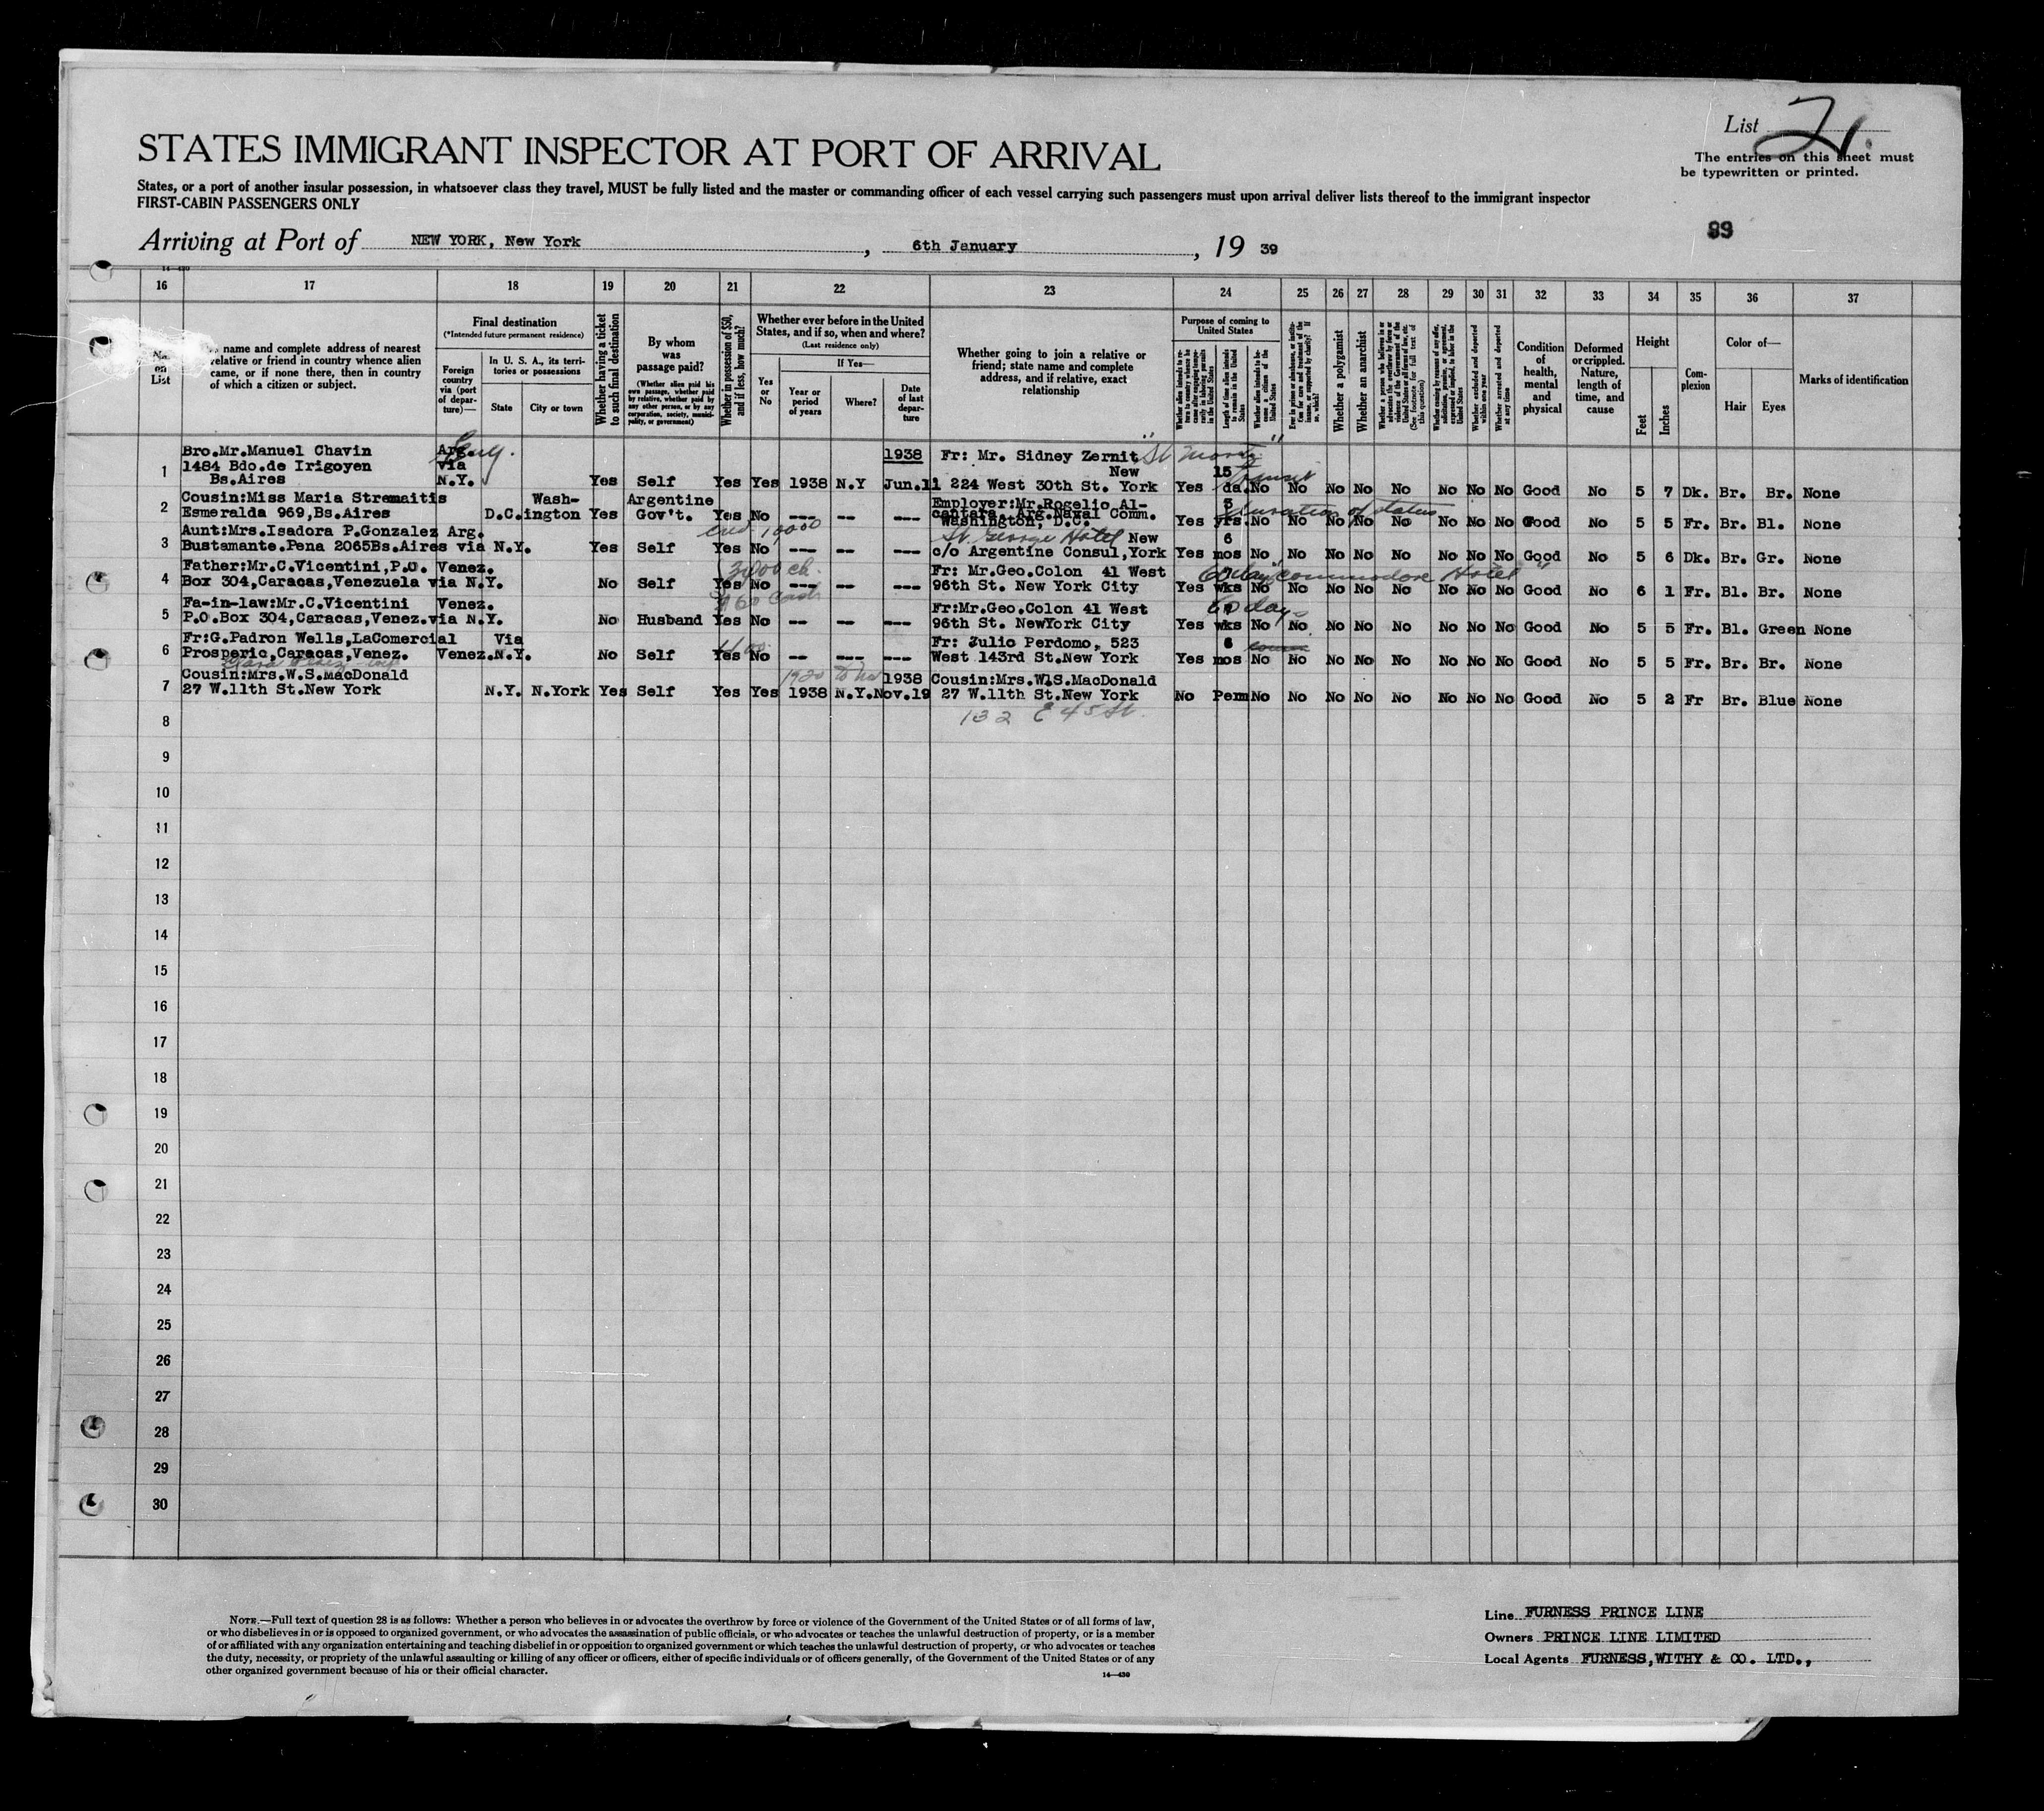 List 21.
The entries on this sheet must
be typewritten or printed.
STATES IMMIGRANT INSPECTOR AT PORT OF ARRIVAL
States, or a port of another insular possession, in whatsoever class they travel, MUST be fully listed and the master or commanding officer of each vessel carrying such passengers must upon arrival deliver lists thereof to the immigrant inspector
FIRST-CABIN PASSENGERS ONLY
89
Arriving at Port of NEW YORK, New York, 6th January, 19 39
14-430
16 17 18 19 20 21 22 23 24 25 26 27 28 29 30 31 32 33 34 35 36 37
No. on List
name and complete address of nearest
relative or friend in country whence alien
came, or if none there, then in country
of which a citizen or subject.
Final destination
(*Intended future permanent residence)
Foreign country via (port of departure)—
In U. S. A., its territories or possessions
State
City or town
Whether having a ticket to such final destination
By whom was passage paid?
(Whether alien paid his own passage, whether paid by relative, whether paid by any other person, or by any corporation, society, municipality, or government)
Whether in possession of $50, and if less, how much?
Whether ever before in the United States, and if so, when and where?
(Last residence only)
Yes or No
If Yes—
Year or period of years
Where?
Date of last departure
Whether going to join a relative or
friend; state name and complete
address, and if relative, exact
relationship
Purpose of coming to United States
Length of time alien intends to remain in the United States
Whether alien intends to become a citizen of the United States
Whether a polygamist
Whether an anarchist
Whether excluded and deported within one year
Whether arrested and deported at any time
Condition of health, mental and physical
Deformed or crippled. Nature, length of time, and cause
Height
Feet
Inches
Complexion
Color of—
Hair
Eyes
Marks of identification
Bro.Mr.Manuel Chavin Arg. 1938 Fr: Mr. Sidney Zernit
1 1484 Bdo.de Irigoyen via New 15
Bs.Aires N.Y. Yes Self Yes Yes 1938 N.Y Jun.11 224 West 30th St. York Yes da. No No No No No No No No Good No 5 7 Dk. Br. Br. None
transit
Cousin:Miss Maria Stremaitis Wash- Argentine Employer:Mr.Rogelio Al- 3
2 Esmeralda 969,Bs.Aires D.C. ington Yes Gov't. Yes No --- -- --- cantara, Arg.Naval Comm.
Washington, D.C. Yes yrs. No No No No No No No No Good No 5 5 Fr. Br. Bl. None
duration of status
Aunt:Mrs.Isadora P.Gonzalez Arg. St. George Hotel New 6
3 Bustamante.Pena 2065Bs.Aires via N.Y. Yes Self Yes No --- -- --- c/o Argentine Consul,York Yes mos No No No No No No No No Good No 5 6 Dk. Br. Gr. None
Father:Mr.C.Vicentini,P.O. Venez. Fr: Mr.Geo.Colon 41 West
60 days Commodore Hotel
4 Box 304,Caracas,Venezuela via N.Y. No Self Yes No --- -- --- 96th St. New York City Yes wks No No No No No No No No Good No 6 1 Fr. Bl. Br. None
Fa-in-law:Mr.C.Vicentini Venez. Fr:Mr.Geo.Colon 41 West
60 days
5 P.O.Box 304,Caracas,Venez.via N.Y. No Husband Yes No -- -- --- 96th St. NewYork City Yes wks No No No No No No No No Good No 5 5 Fr. Bl. Green None
Fr:G.Padron Wells,LaComercial Via Fr: Julio Perdomo, 523 6
6 Prosperic,Caracas,Venez. Venez.N.Y. No Self Yes No -- --- --- West 143rd St.New York Yes mos No No No No No No No No Good No 5 5 Fr. Br. Br. None
Cousin:Mrs.W.S.MacDonald 1938 Cousin:Mrs.W.S.MacDonald
7 27 W.11th St.New York N.Y. N.York Yes Self Yes Yes 1938 N.Y. Nov.19 27 W.11th St.New York No Perm No No No No No No No No Good No 5 2 Fr Br. Blue None
132 E 45 St.
8
9
10
11
12
13
14
15
16
17
18
19
20
21
22
23
24
25
26
27
28
29
30
NOTE.—Full text of question 28 is as follows: Whether a person who believes in or advocates the overthrow by force or violence of the Government of the United States or of all forms of law,
or who disbelieves in or is opposed to organized government, or who advocates the assassination of public officials, or who advocates or teaches the unlawful destruction of property, or is a member
of or affiliated with any organization entertaining and teaching disbelief in or opposition to organized government or which teaches the unlawful destruction of property, or who advocates or teaches
the duty, necessity, or propriety of the unlawful assaulting or killing of any officer or officers, either of specific individuals or of officers generally, of the Government of the United States or of any
other organized government because of his or their official character.
14-430
Line FURNESS PRINCE LINE
Owners PRINCE LINE LIMITED
Local Agents FURNESS,WITHY & CO. LTD.,